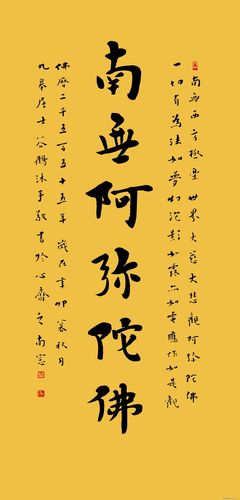 南無西方極樂世界大慈大悲觀阿弥陀佛
一切有為法如夢幻泡影如露亦如電應作如是觀
南無阿弥陀佛
佛曆二千五百五十五年歲在辛卯暮秋月
九華居士谷沐手敬書於心齋之南窓